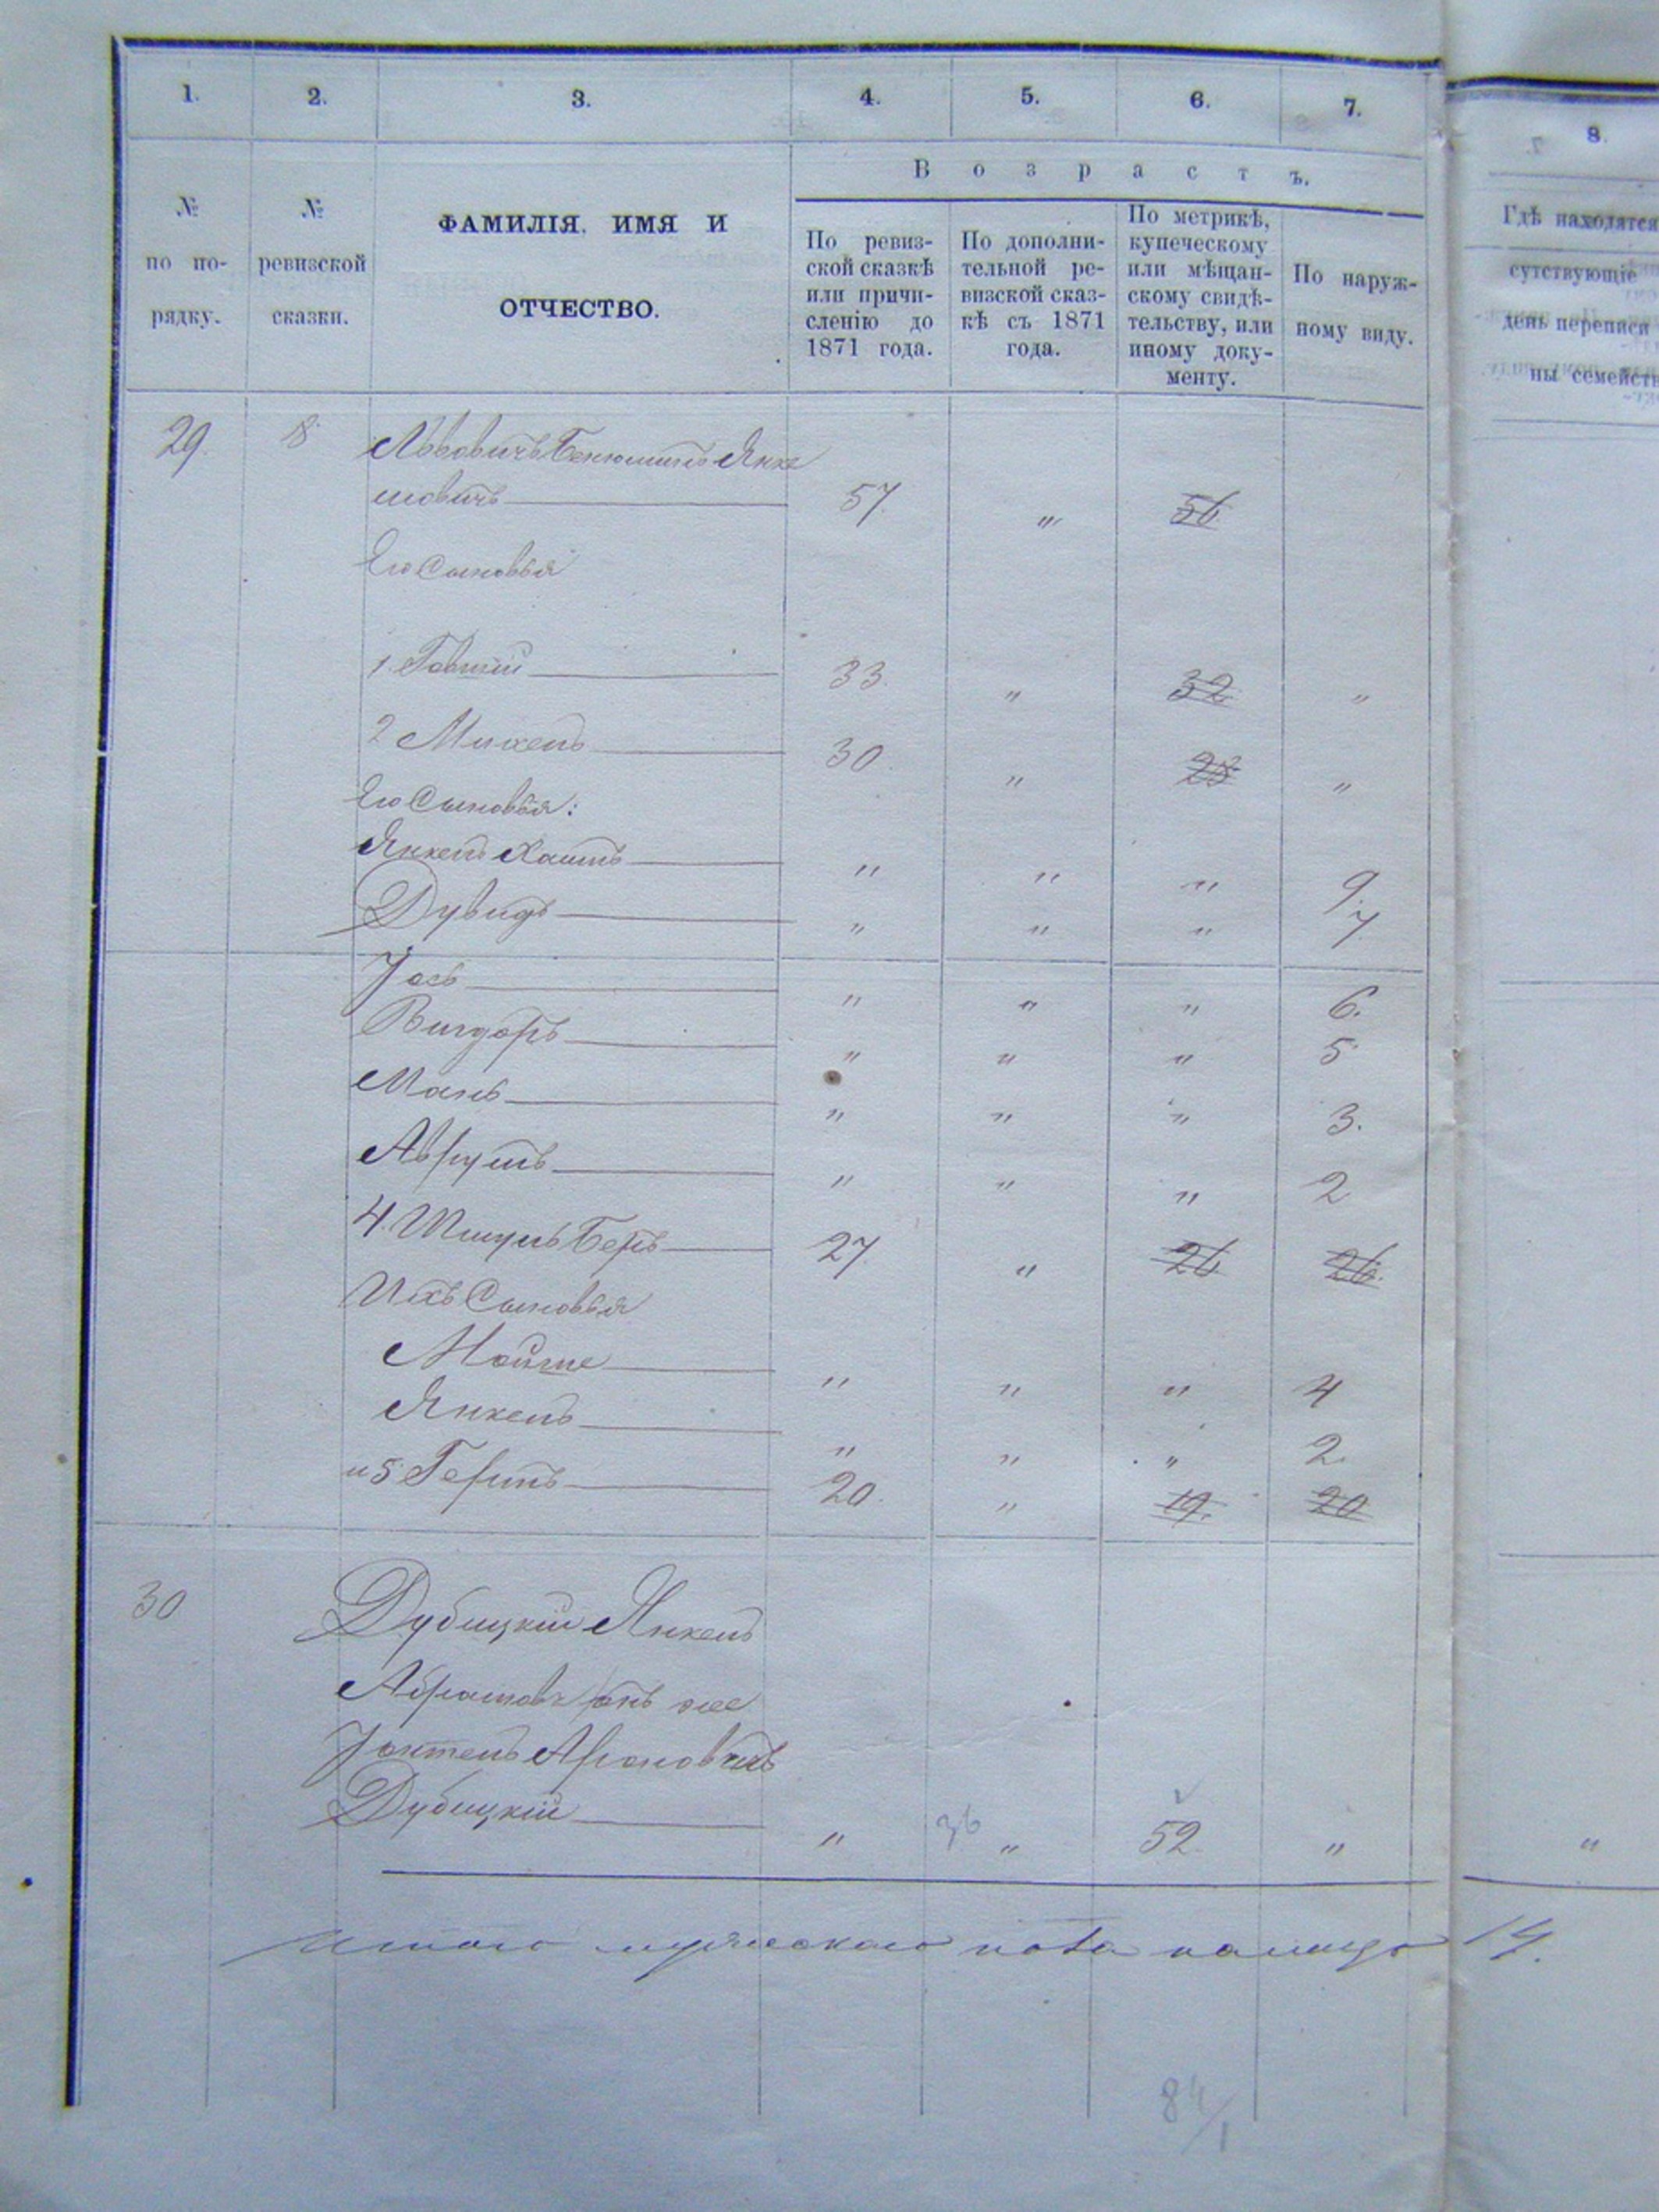 1. 2. 3. 4. 5. 6. 7. 8.
Возрастъ.
№ по по-
рядку.
№
ревизской
сказки.
ФАМИЛІЯ, ИМЯ И
ОТЧЕСТВО.
По ревиз-
ской сказкѣ
или причи-
сленію до
1871 года.
По дополни-
тельной ре-
визской сказ-
кѣ съ 1871
года.
По метрикѣ,
купеческому
или мѣщан-
скому свидѣ-
тельству, или
иному доку-
менту.
По наруж-
ному виду.
Гдѣ находятся
сутствующіе
день переписи
ны семейств
29 8 Львовичъ Бенюминъ Янке
левичъ 57. " 56
Его Сыновья
1. 33. " 32 "
2 Михель 30. " "
Его Сыновья:
Янкель Хаимъ " " " 9.
Дувидъ " " " 7.
Іось " " " 6.
Вигдоръ " " " 5
" " " 3.
Аврумъ " " " 2
4. Шмуль Беръ 27. " 26 26.
Ихъ Сыновья
Мойше " " " 4
Янкель " " " 2.
и 5. Гершъ 20. " 19. 20
30 Дубицкій Янкель
Абрамов онъ же
Арановичъ
Дубицкій " 36 " 52. " "
Итого мужескаго пола налицо 14.
84/1